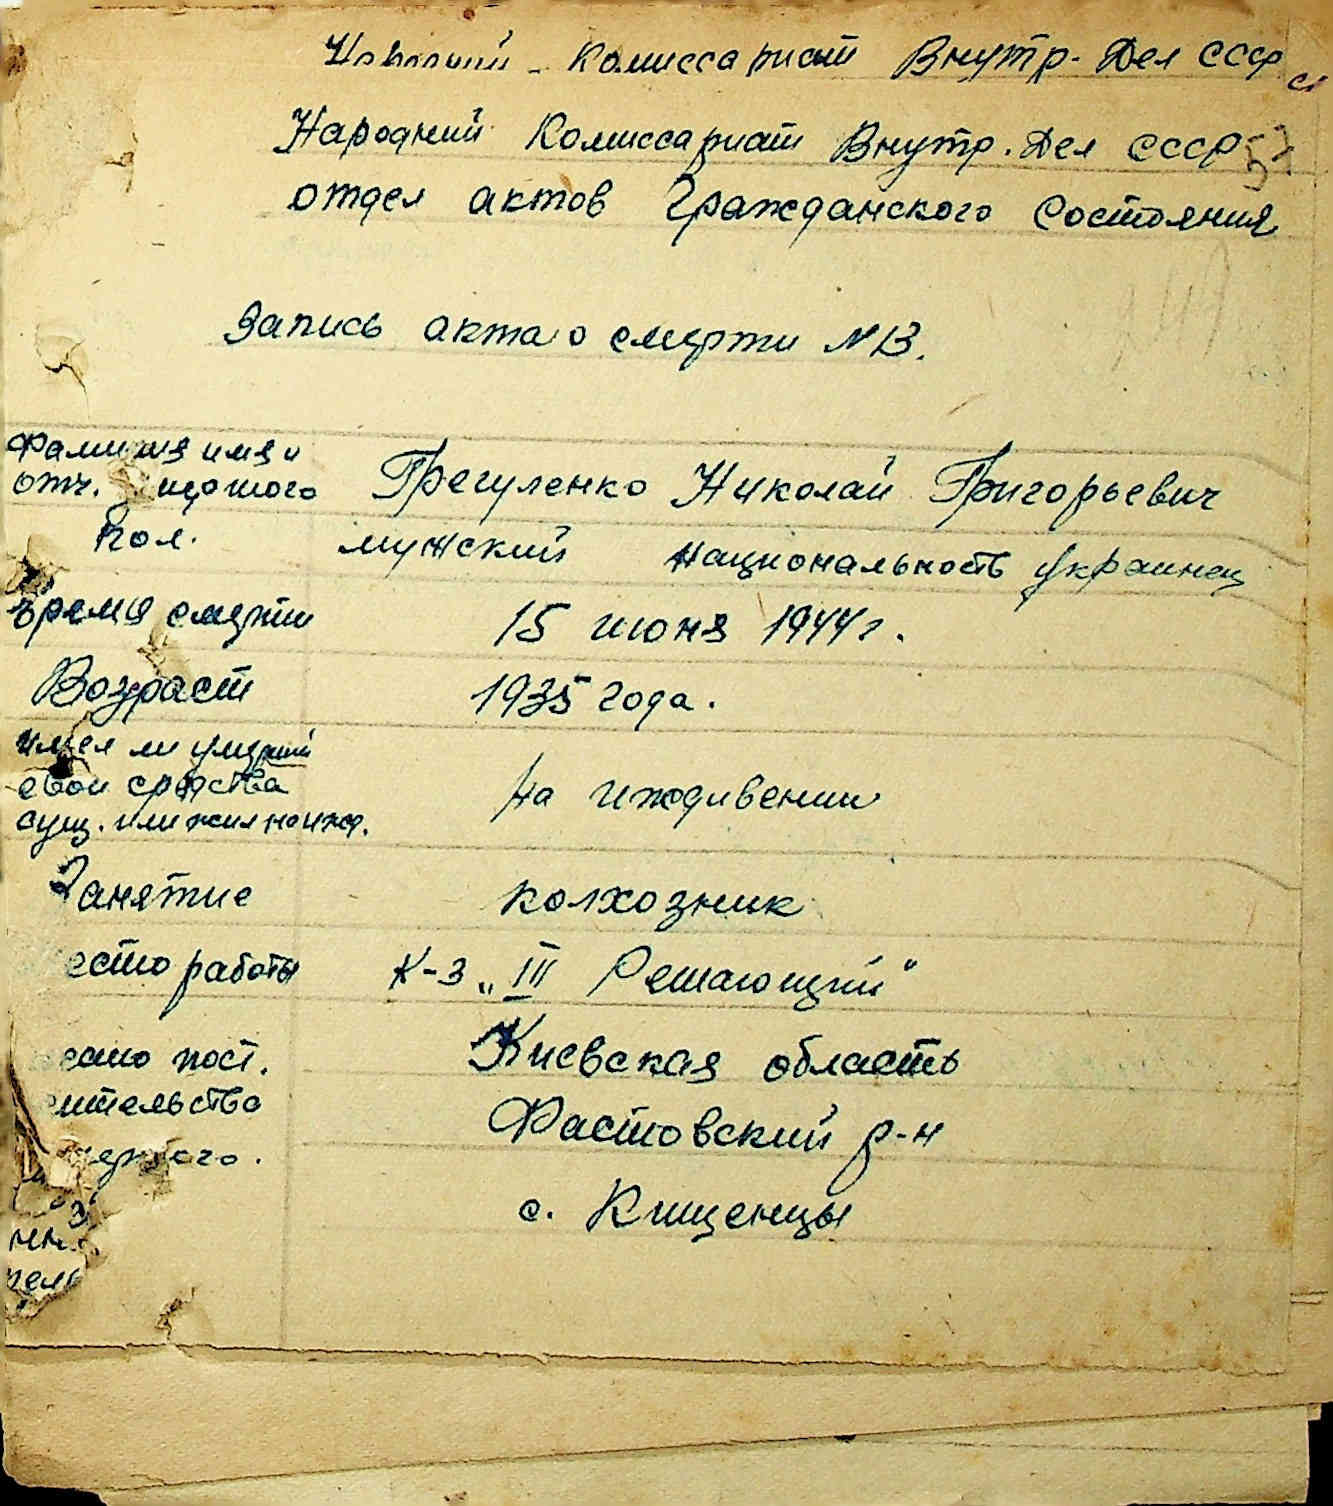 Комиссариат Внутр. Дел СССР
Народний Комиссариат Внутр. Дел СССР
отдел актов Гражданского Состояния
Запись акта о смерти N 13.
Фамилия имя и
отч.
Грегуленко Николай Григорьевич
Пол. мужский национальность украинец
время смерти 15 июня 1944 г.
Возраст 1935 года.
имел ли умерший
свои средства
сущ. или жил на иж.
на иждивении
Занятие колхозник
есто работы К-з „III Решающий"
есто пост.
ительства
Киевская область
Фастовский р-н
с. Кищенцы